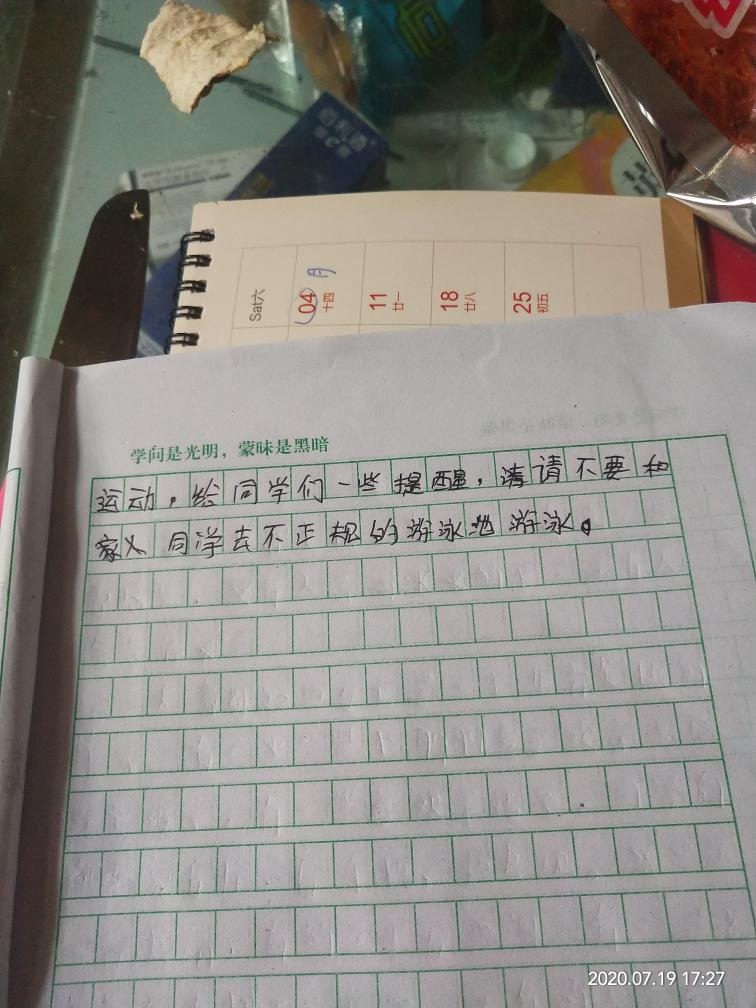 Sat六
04
十四
11
廿一
18
廿八
25
初五
学问是光明，蒙昧是黑暗
运动，给同学们一些提醒，请请不要和
家人同学去不正规的游泳池游泳。
2020.07.19 17:27